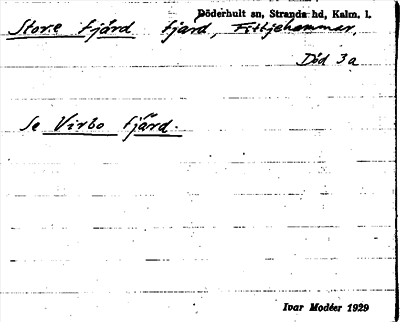 Döderhult sn, Stranda hd, Kalm. l.
Store fjärd fjärd, Fittjehammar.
Död 3a
Se Virbo fjärd.
Ivar Modéer 1929